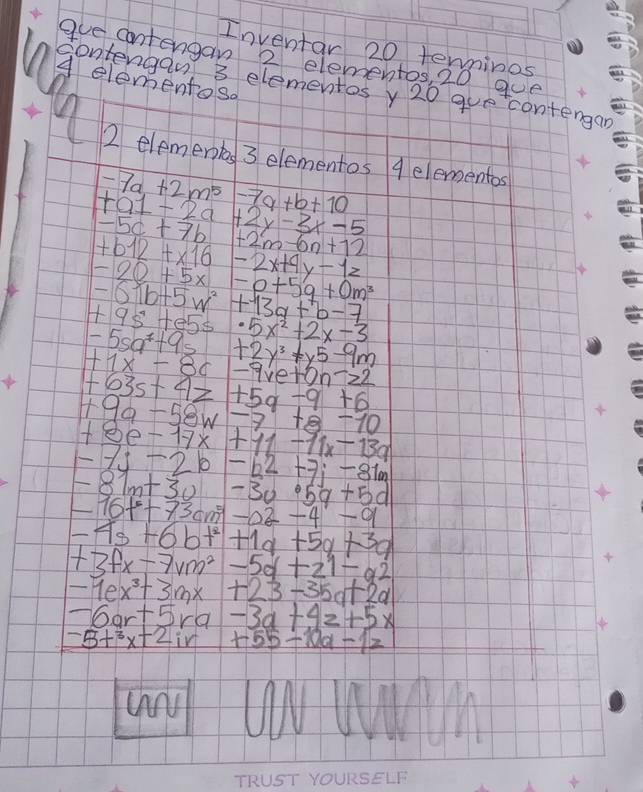 Inventar 20 terminos
que contengan 2 elementos, 20 que
contengan 3 elementos y 20 que contengan
4 elementos.
2 elementos 3 elementos 4 elementos
-7a +2m⁵ -7a+b+10
+a1 - 2a +2y-3x-5
-5c + 7b +2m-6n+12
+b12 +x16 -2x+4y-1z
-20 +5x -o+5a+0m³
-61b+5w² +13a+b-7
+9s +e5s •5x²+2x-3
-5sa²+9s +2y³+y5-9m
+1x - 8c -9ve+0n-22
+63s+4z +5a-9+6
+9a-58w -7 +8 -10
+8e-17x +11 -11x-13a
-7y-2b -b2 +7j -81m
-81m+3u -3u •5a+5d
-16t+73cm³ -02-4-9
-4s+6bt² +1a+5a+3a
+3fx-7vm² -5d+21-a2
-1ex³+3mx +23-35a+2a
-6ar+5ra -3a+4z+5x
-5+³x+2ir +55-10a-1z
TRUST YOURSELF